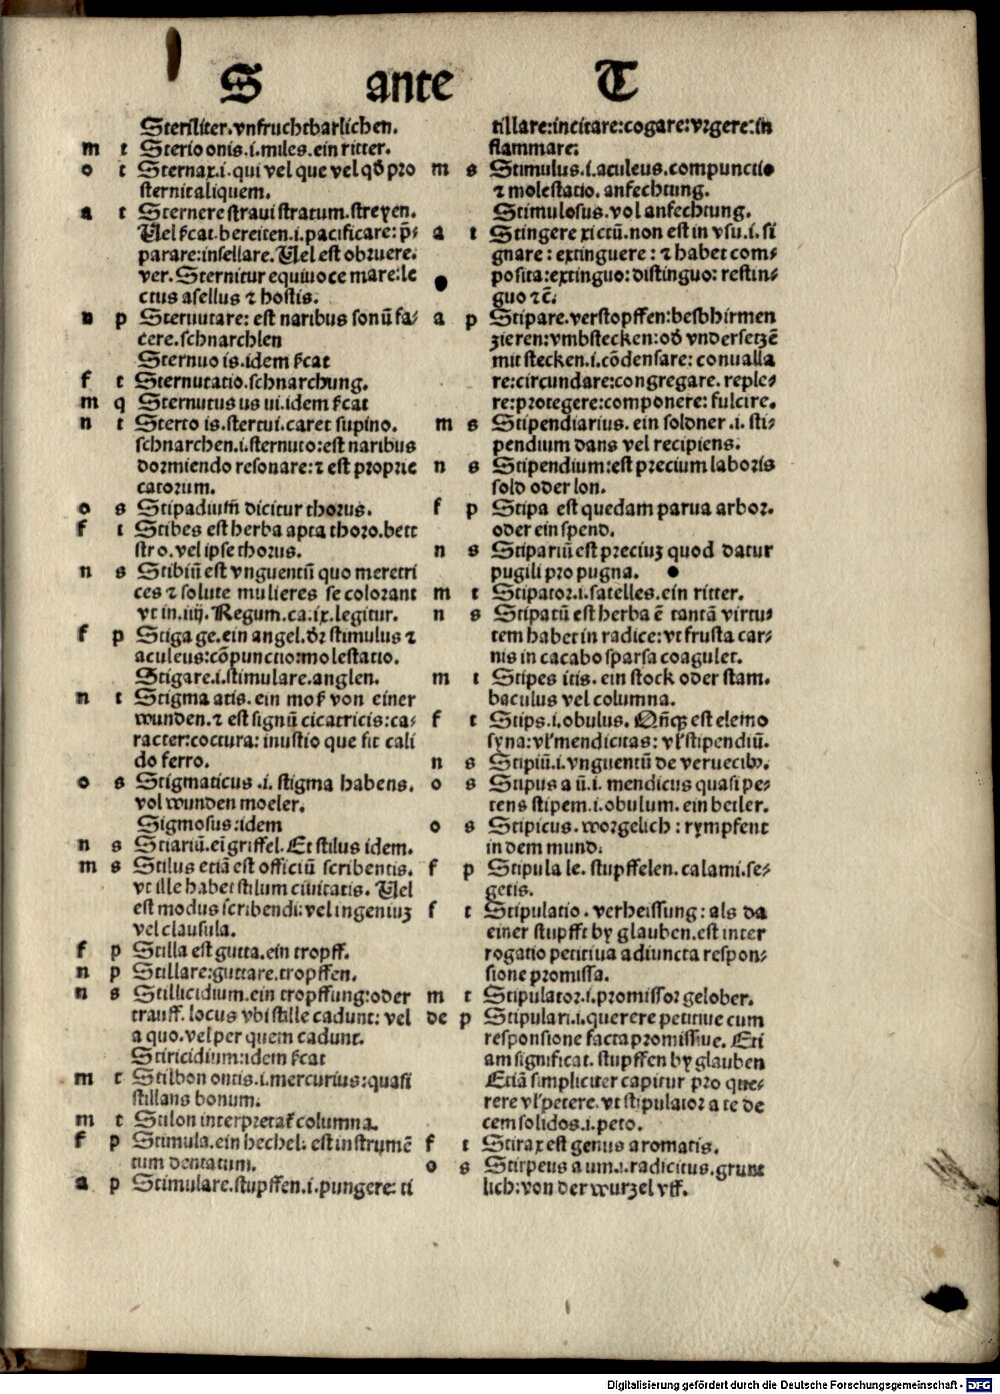 S ante T
Steriliter.vnfruchtbarlichen.
m t Sterio onis.i.miles.ein ritter.
o t Sternax.i.qui vel que vel qđ pro
sternit aliquem.
a t Sternere straui stratum.streyen.
Uel ſcat.bereiten.i.pacificare:p̄-
parare:insellare.Uel est obruere.
ver.Sternitur equiuoce mare:le
ctus asellus ⁊ hostis.
n p Sternutare: est naribus sonū fa-
cere.schnarchlen
Sternuo is.idem ſcat
f t Sternutatio.schnarchung.
m q Sternutus us ui.idem ſcat
n t Sterto is.stertui.caret supino.
schnarchen.i.sternuto:est naribus
dormiendo resonare:⁊ est proprie
catorum.
o s Stipadium̄ dicitur thorus.
f t Stibes est herba apta thoro.bett
stro.vel ipse thorus.
n s Stibiū est vnguentū quo meretri
ces ⁊ solute mulieres se colorant
vt in.iiij.Regum.ca.ix.legitur.
f p Stiga ge.ein angel.đr stimulus ⁊
aculeus:cōpunctio:molestatio.
Stigare.i.stimulare.anglen.
n t Stigma atis.ein moß von einer
wunden.⁊ est signū cicatricis:ca-
racter:coctura:inustio que fit cali
do ferro.
o s Stigmaticus.i.stigma habens.
vol wunden moeler.
Sigmosus:idem
n s Stiariū.ein̄ griffel.Et stilus idem.
m s Stilus etiā est officiū scribentis.
vt ille habet stilum ciuitatis. Uel
est modus scribendi:vel ingeniuȝ
vel clausula.
f p Stilla est gutta.ein tropff.
n p Stillare:guttare.tropffen.
n s Stillicidium.ein tropffung:oder
trauff.locus vbi stille cadunt: vel
a quo.vel per quem cadunt.
Stiricidium:idem ſcat
m t Stilbon ontis.i.mercurius:quasi
stillans bonum.
m t Stilon interpretat̄ columna.
f p Stimula.ein hechel.est instrumē
tum dentatum.
a p Stimulare.stupffen.i.pungere:ti
tillare:incitare:cogare:vrgere:in
flammare:
m s Stimulus.i.aculeus.compunctio
⁊ molestatio.anfechtung.
Stimulosus.vol anfechtung.
a t Stingere xi ctū.non est in vsu.i.si
gnare:extinguere:⁊ habet com-
posita:extinguo:distinguo:restin-
guo ⁊c̄.
a p Stipare.verstopffen:beshhirmen
zieren:vmbstecken:ođ vndersetzē
mit stecken.i.cōdensare:conualla
re:circundare:congregare.reple-
re:protegere:componere:fulcire.
m s Stipendiarius.ein soldner.i.sti-
pendium dans vel recipiens.
n s Stipendium:est precium laboris
sold oder lon.
f p Stipa est quedam parua arbor.
oder ein spend.
n s Stipariū est preciuȝ quod datur
pugili pro pugna.
m t Stipator.i.satelles.ein ritter.
n s Stipatū est herba ē tantā virtu-
tem habet in radice:vt frusta car-
nis in cacabo sparsa coagulet.
m t Stipes itis.ein stock oder stam.
baculus vel columna.
f t Stips.i.obulus. Qn̄cꝫ est elemo
syna:vl̓ mendicitas:vl̓ stipendiū.
n s Stipiū.i.vnguentū de veruecibꝰ.
o s Stipus a ū.i.mendicus quasi pe-
tens stipem.i.obulum.ein betler.
o s Stipicus.worgelich:rympfent
in dem mund.
f p Stipula le.stupffelen.calami.se-
getis.
f t Stipulatio.verheissung:als da
einer stupfft by glauben.est inter
rogatio petitiua adiuncta respon-
sione promissa.
m t Stipulator.i.promissor gelober.
de p Stipulari.i.querere petitiue cum
responsione facta promissiue. Eti
am significat.stupffen by glauben
Etiā simpliciter capitur pro que-
rere vl̓ petere.vt stipulator a te de
cem solidos.i.peto.
f t Stirax est genus aromatis.
o s Stirpeus a um.i.radicitus.grunt
lich:von der wurzel vff.
Digitalisierung gefördert durch die Deutsche Forschungsgemeinschaft - DFG